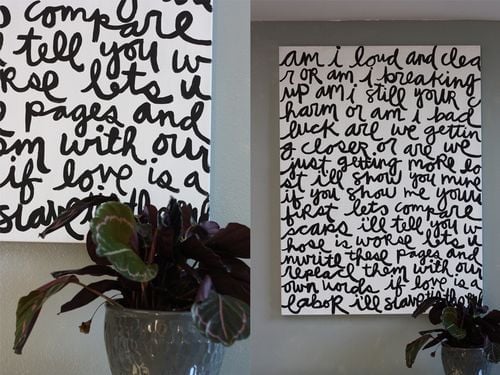 compare
tell you w
rse lets u
pages and
em with our
if love is a
slave
am i loud and clea
r or am i breaking
up am i still your c
harm or am i bad
luck are we gettin
g closer or are we
just getting more lo
st ill show you mine
if you show me your
first lets compare
scars ill tell you w
hose is worse lets u
nwrite these pages and
replace them with our
own words if love is a
labor ill slave